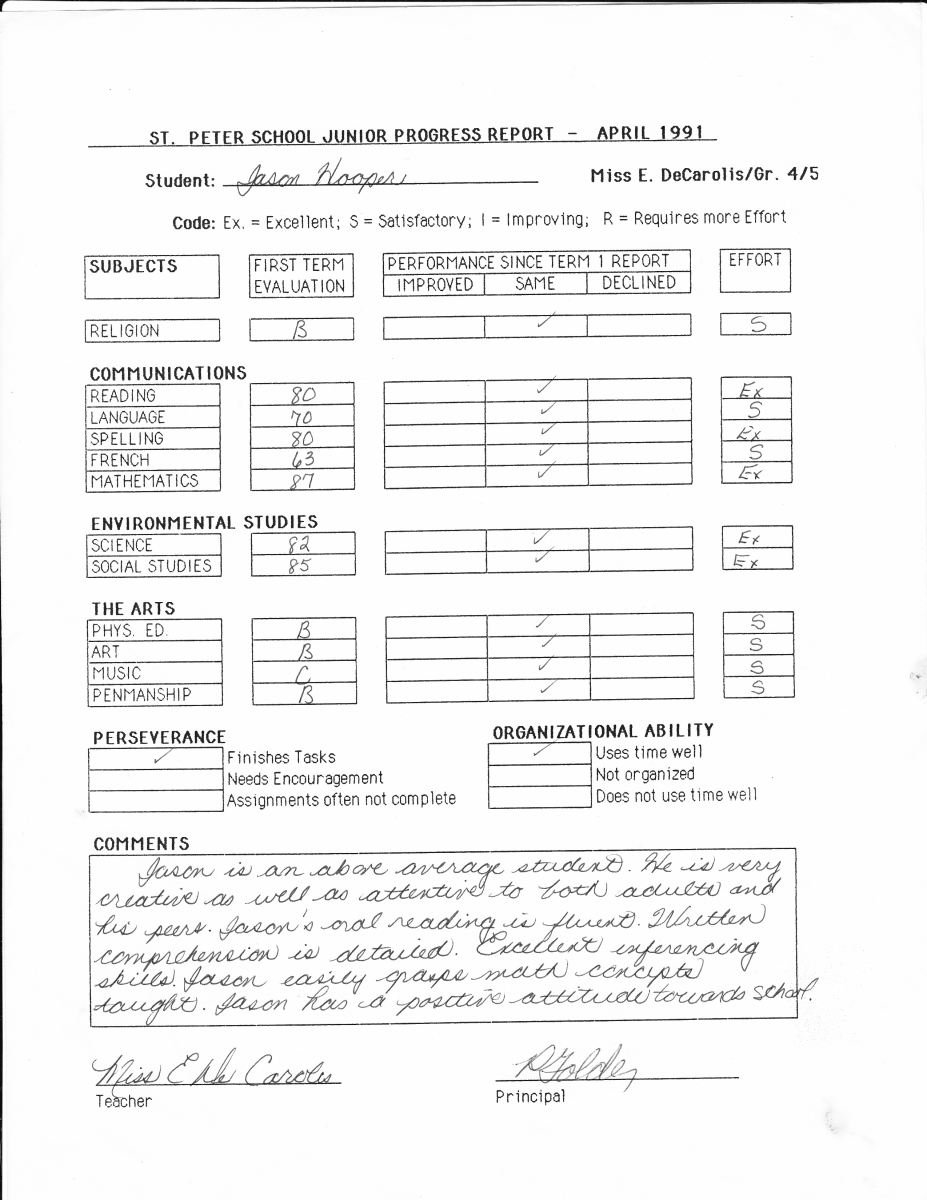 ST. PETER SCHOOL JUNIOR PROGRESS REPORT - APRIL 1991
Student: Jason Hooper Miss E. DeCarolis/Gr. 4/5
Code: Ex. = Excellent; S = Satisfactory; I = Improving; R = Requires more Effort
SUBJECTS FIRST TERM EVALUATION PERFORMANCE SINCE TERM 1 REPORT EFFORT
IMPROVED SAME DECLINED
RELIGION B ✓ S
COMMUNICATIONS
READING 80 ✓ Ex
LANGUAGE 70 ✓ S
SPELLING 80 ✓ Ex
FRENCH 63 ✓ S
MATHEMATICS 87 ✓ Ex
ENVIRONMENTAL STUDIES
SCIENCE 82 ✓ Ex
SOCIAL STUDIES 85 ✓ Ex
THE ARTS
PHYS. ED. B ✓ S
ART B ✓ S
MUSIC C ✓ S
PENMANSHIP B ✓ S
PERSEVERANCE
✓ Finishes Tasks
Needs Encouragement
Assignments often not complete
ORGANIZATIONAL ABILITY
✓ Uses time well
Not organized
Does not use time well
COMMENTS
Jason is an above average student. He is very
creative as well as attentive to both adults and
his peers. Jason's oral reading is fluent. Written
comprehension is detailed. Excellent inferencing
skills. Jason easily grasps math concepts
taught. Jason has a positive attitude towards school.
Miss E De Carolis
Teacher
Principal